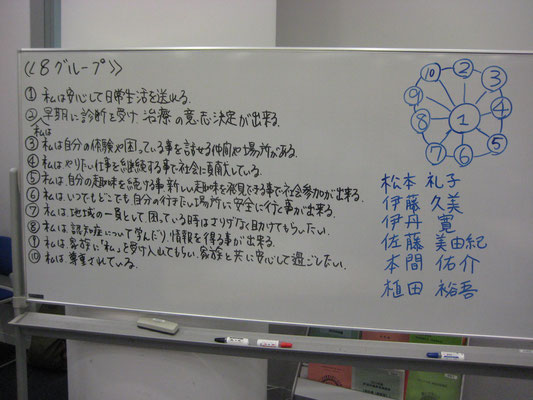 《8グループ》
① 私は安心して日常生活を送れる.
② 早期に診断を受け 治療の意志決定が出来る.
私は
③ 私は自分の体験や困っている事を話せる仲間や場所がある.
④ 私は、やりたい仕事を継続する事で社会に貢献している.
⑤ 私は、自分の趣味を続ける事新しい趣味を発見できる事で社会参加が出来る.
⑥ 私は、いつでもどこでも自分の行きたい場所に安全に行く事が出来る.
⑦ 私は、地域の一員として困っている時はさりげなく助けてもらいたい.
⑧ 私は 認知症について学んだり情報を得る事が出来る.
⑨ 私は、家族に「私」を受け入れてもらい、家族と共に安心して過ごしたい.
⑩ 私は、尊重されている.
1
2
3
4
5
6
7
8
9
10
松本 礼子
伊藤 久美
伊丹 寛
佐藤 美由紀
本間 佑介
植田 裕吾